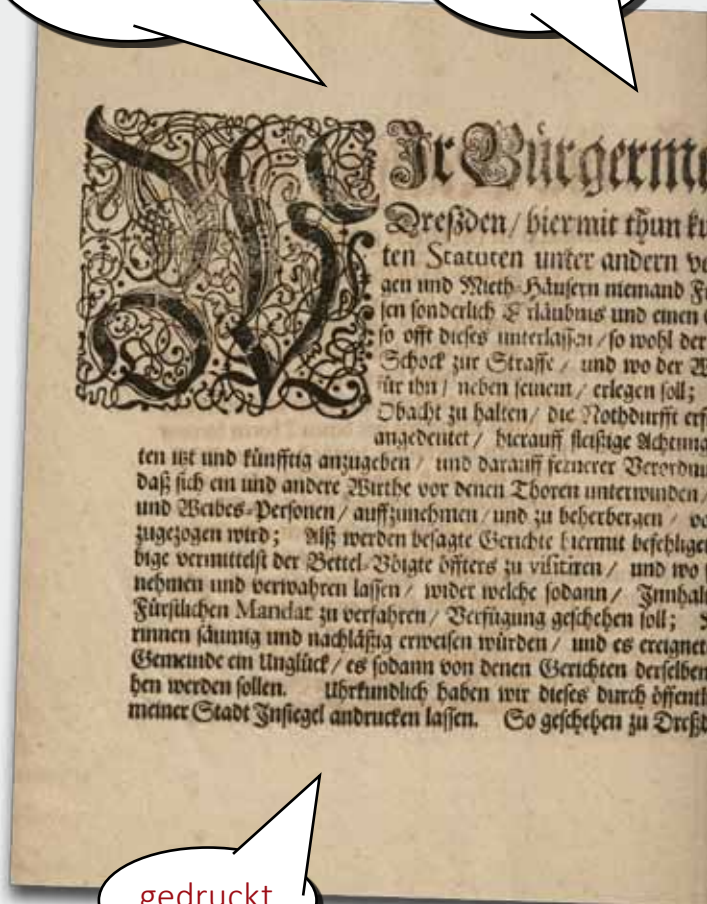 WIr Bürgerme
Dreßden / hiermit thun ku
ten Statuten unter andern ve
gen und Mieth-Häusern niemand
sen sonderlich Erläubnus und einen
so offt dieses unterlassen / so wohl der
Schock zur Straffe / und wo der
für ihn / neben seinem / erlegen soll;
Obacht zu halten / die Nothdurfft erf
angedeutet / hierauff fleißige Achtung
ten itzt und künfftig anzugeben / und darauff fernerer Verordnu
daß sich ein und andere Wirthe vor denen Thoren unterwinden /
und Weibes-Personen / auffzunehmen / und zu beherbergen /
zugezogen wird; Alß werden besagte Gerichte hiermit befehliget
bige vermittelst der Bettel-Vöigte öffters zu visitiren / und wo
nehmen und verwahren lassen / wider welche sodann / Innhal
Fürstlichen Mandat zu verfahren / Verfügung geschehen soll;
rinnen säumig und nachläßig erweisen würden / und es ereignet
Gemeinde ein Unglück / es sodann von denen Gerichten derselben
hen werden sollen. Uhrkundlich haben wir dieses durch öffentl
meiner Stadt Insiegel andrucken lassen. So geschehen zu Dreßd
gedruckt